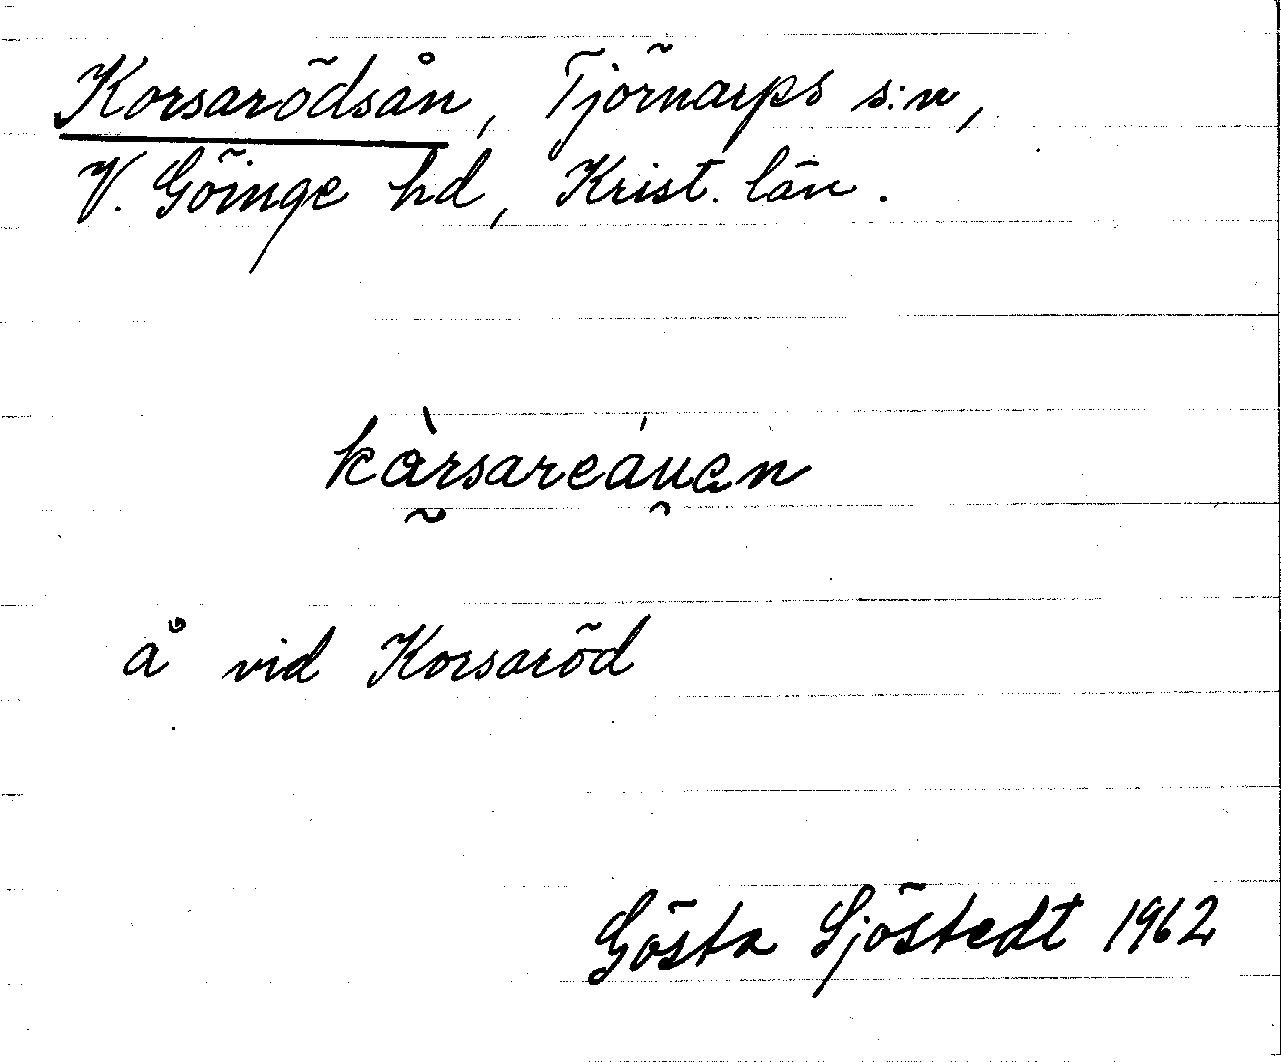 Korsarödsån, Tjörnarps s:n,
V. Göinge hd, Krist. län.
kàrsareáuan
å vid Korsaröd
Gösta Sjöstedt 1962